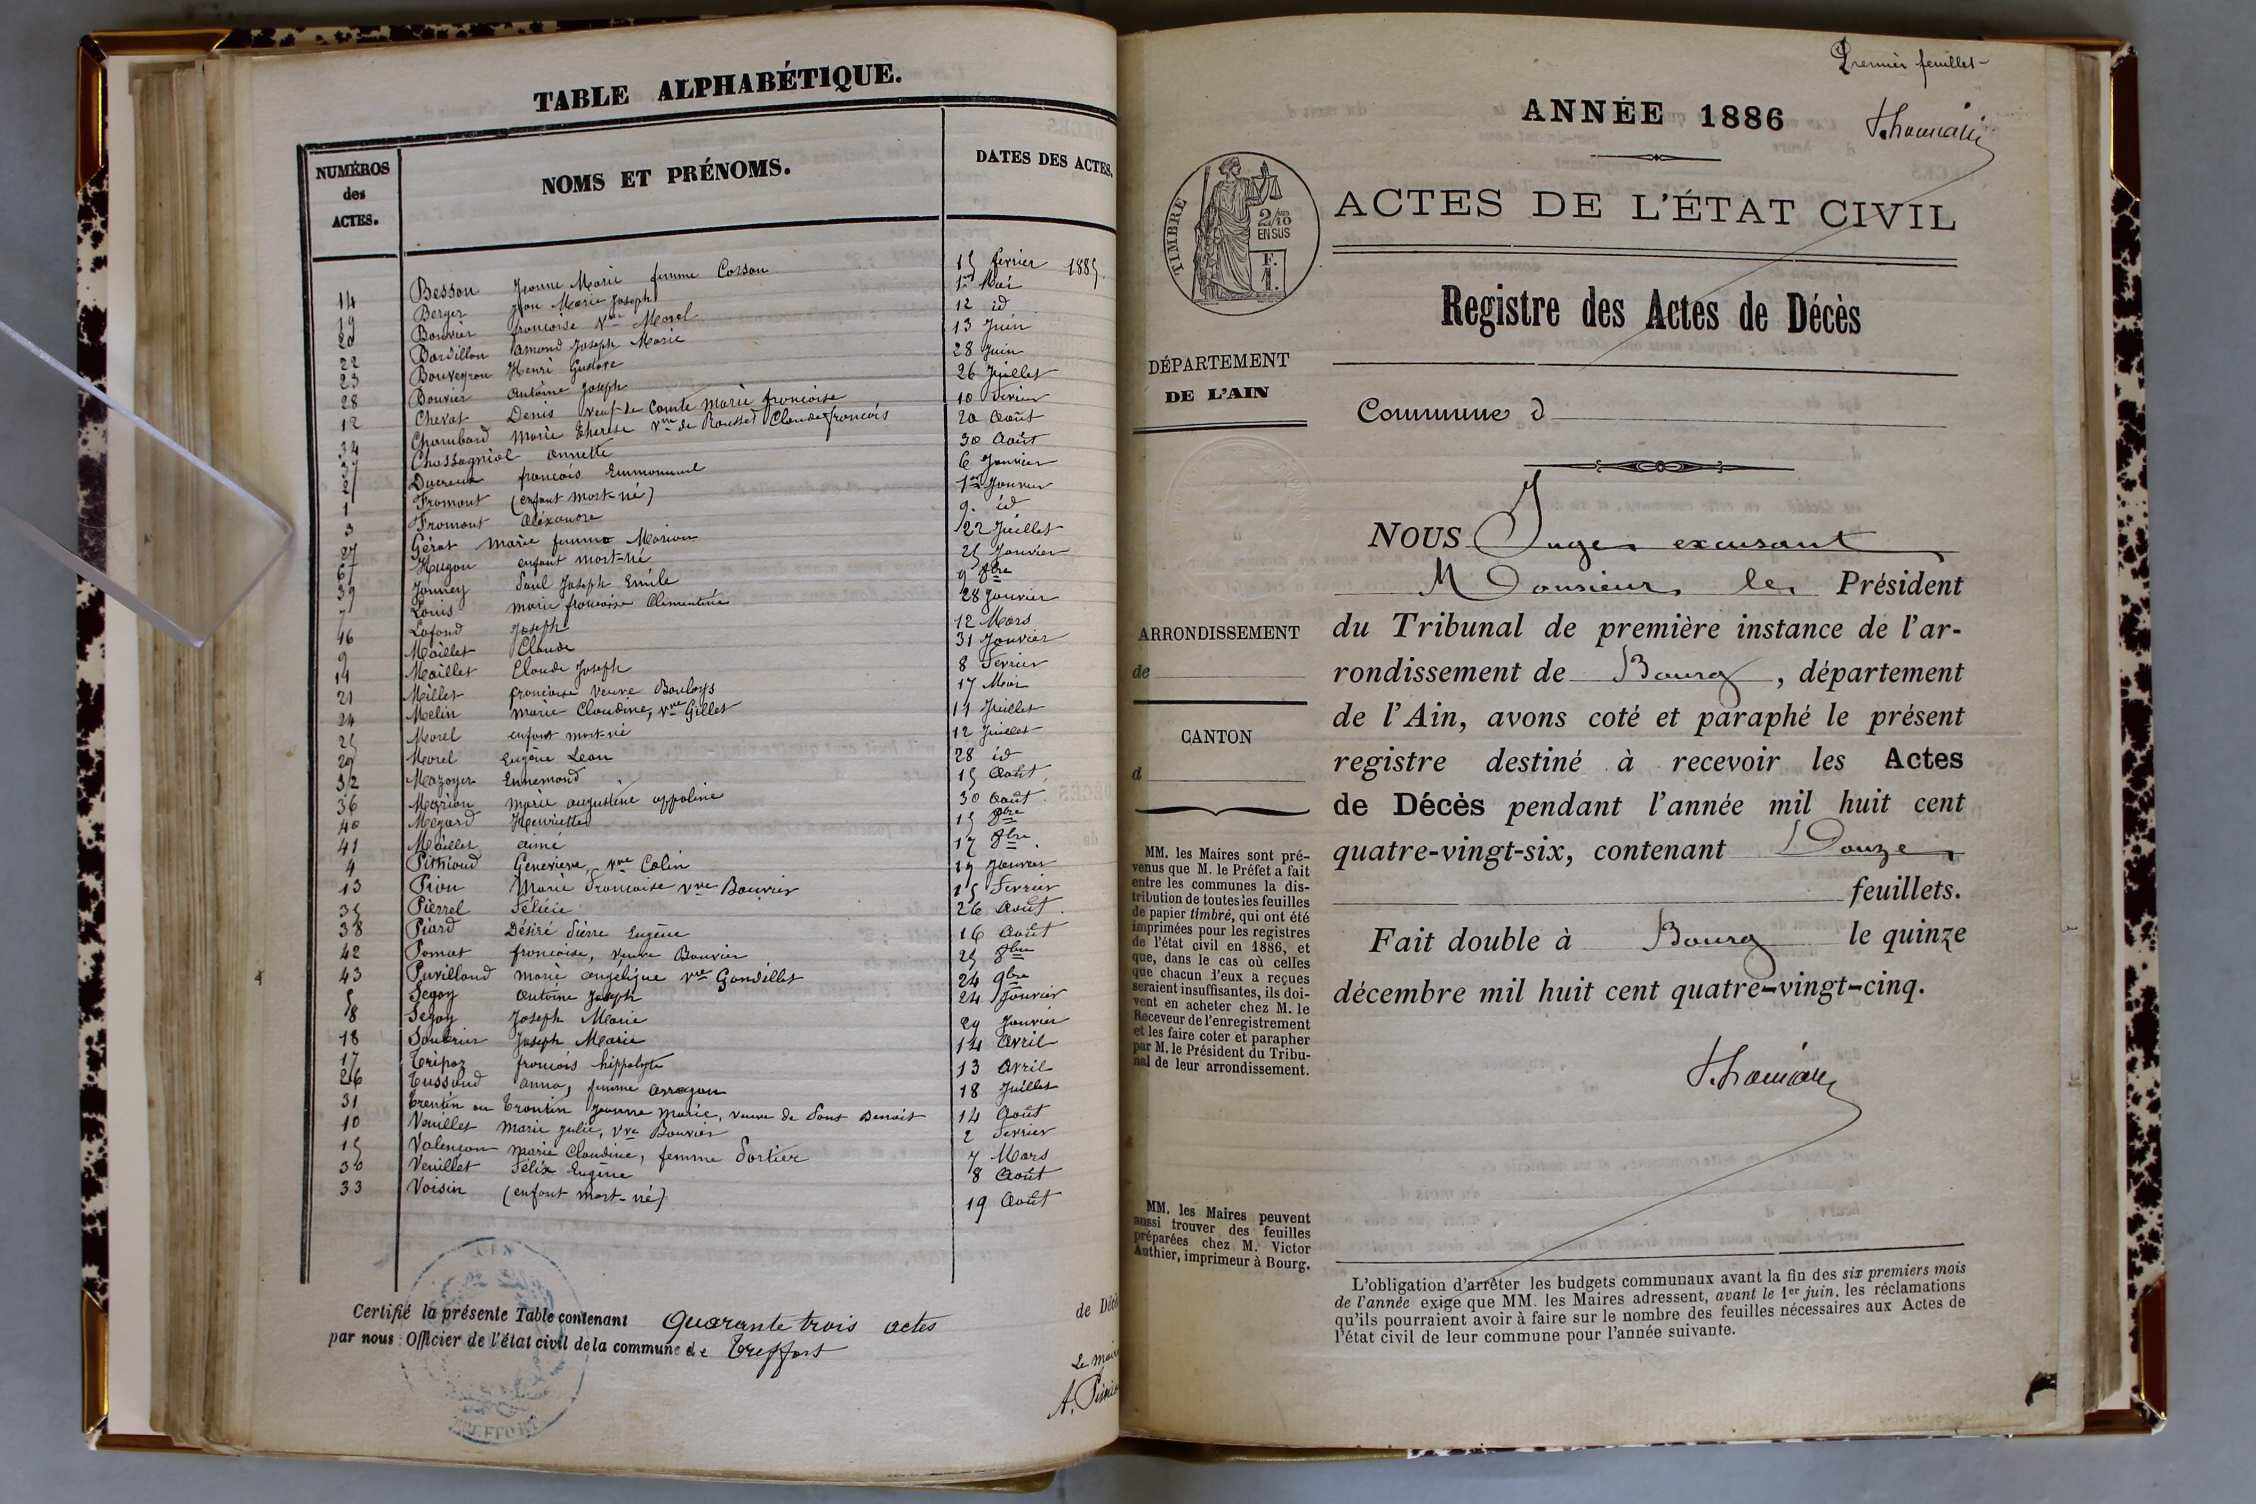 TABLE ALPHABÉTIQUE.
NUMÉROS des ACTES.
NOMS ET PRÉNOMS.
DATES DES ACTES.
Besson Jeanne Marie femme Cosson 15 février 1885.
14 Berger Jean Marie Joseph 1er Mai
19 Bouvier francoise Vve Morel 12 id
20 Bardillon amond Joseph Marie 13 Juin
22 Bouveyron Henri Gustave 28 Juin
23 Bouvier antoine Joseph 26 Juillet
28 Chevat Denis veuf de Comte Marie francoise 10 février
12 Chambard Marie Therese Vve de Rousset Claude francois 20 Août
34 Chassagniol annette 30 Août
37 Ducreux francois Emmanuel 6 Janvier
2 Fromont (enfant mort-né) 1er Janvier
1 Fromont Aléxandre 9. id
3 Gérat marie femme Marion 22 Juillet
27 Hugon enfant mort-né 25 Janvier
6 Janney Paul Joseph Emile 9 8bre
39 Louis marie francoise Clementine 28 Janvier
7 Lafond Joseph 12 Mars
16 Maillet Claude 31 Janvier
9 Maillet Claude Joseph 8 Février
11 Millet francoise veuve Bouloys 17 Mai
21 Melin marie Claudine, Vve Gillet 11 Juillet
24 Morel enfant mort-né 12 Juillet
25 Morel Eugène Leon 28 id
29 Mazoyer Ennemond 15 Août
32 Marion marie augustine appoline 30 Août
36 Megard Henriette 15 8bre
40 Maillet aimé 17 8bre.
41 Pithioud Genevieve, Vve Colin 19 Janvier
4 Pion Marie Francoise Vve Bouvier 15 Février
13 Pierrel Félicie 26 Août.
35 Piard Désiré Pierre Eugène 16 Août
38 Pomat francoise, veuve Bouvier 25 8bre
42 Puvilland marie angélique Vve Gondillet 24 9bre
43 Segoy antoine Joseph 24 Janvier
5 Segoy Joseph Marie 29 Janvier
8 Soubrier Joseph Marie 14 Avril
18 Tripoz francois hippolyte 13 Avril
17 Tussaud anna, femme arragon 18 Juillet
26 Trentin ou Trontin Jeanne Marie, veuve de Pont Benoit 14 Août
31 Veuillet Marie julie, Vve Bouvier 2 Février
10 Valençon marie Claudine, femme Portier 7 Mars
15 Veuillet Félix Eugène 8 Août
30 Voisin (enfant mort-né) 19 Août
33
Certifié la présente Table contenant Quarante trois actes de Décè
par nous Officier de l'état civil de la commune de Treffort
Le mair
AIN
TREFFORT
Premier feuillet
ANNÉE 1886
TIMBRE
2/10
EN SUS
F.
1.
ACTES DE L'ÉTAT CIVIL
Registre des Actes de Décès
Commune d
DÉPARTEMENT
DE L'AIN
ARRONDISSEMENT
de
CANTON
d
MM. les Maires sont pré-
venus que M. le Préfet a fait
entre les communes la dis-
tribution de toutes les feuilles
de papier timbré, qui ont été
imprimées pour les registres
de l'état civil en 1886, et
que, dans le cas où celles
que chacun d'eux a reçues
seraient insuffisantes, ils doi-
vent en acheter chez M. le
Receveur de l'enregistrement
et les faire coter et parapher
par M. le Président du Tribu-
nal de leur arrondissement.
MM. les Maires peuvent
aussi trouver des feuilles
préparées chez M. Victor
Authier, imprimeur à Bourg.
NOUS Juge excusant
Monsieur le Président
du Tribunal de première instance de l'ar-
rondissement de Bourg, département
de l'Ain, avons coté et paraphé le présent
registre destiné à recevoir les Actes
de Décès pendant l'année mil huit cent
quatre-vingt-six, contenant Douze
feuillets.
Fait double à Bourg le quinze
décembre mil huit cent quatre-vingt-cinq.
L'obligation d'arrêter les budgets communaux avant la fin des six premiers mois
de l'année exige que MM. les Maires adressent, avant le 1er juin, les réclamations
qu'ils pourraient avoir à faire sur le nombre des feuilles nécessaires aux Actes de
l'état civil de leur commune pour l'année suivante.